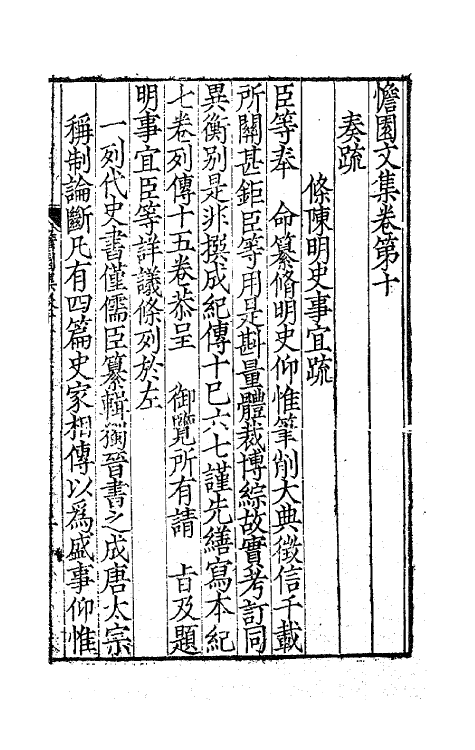 憺園文集卷第十
奏疏
條陳明史事宜疏
臣等奉　命纂脩明史仰惟筆削大典徵信千載
所關甚鉅臣等用是斟量體裁博綜故實考訂同
異衡别是非撰成紀傳十巳六七謹先繕寫本紀
七卷列傳十五卷恭呈　御覽所有請　旨及題
明事宜臣等詳議條列於左
一列代史書僅儒臣纂輯獨晉書之成唐太宗
稱制論斷凡有四篇史家相傳以爲盛事仰惟